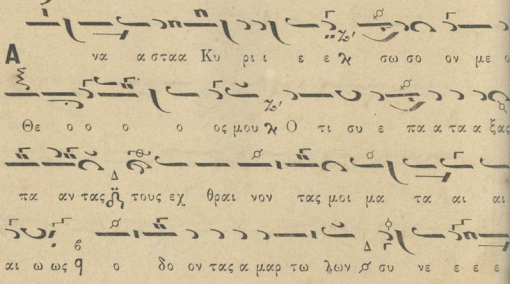 Α να α σταα Κυ ρι ι ε ε σω σο ον με ο
Θε ο ο ο ο ος μου Ο τι συ ε πα α τα α ξας
πα αν τας τους εχ θραι νον τας μοι μα τα αι αι
αι ω ως ο δο ον τας α μαρ τω λων συ νε ε ε ε